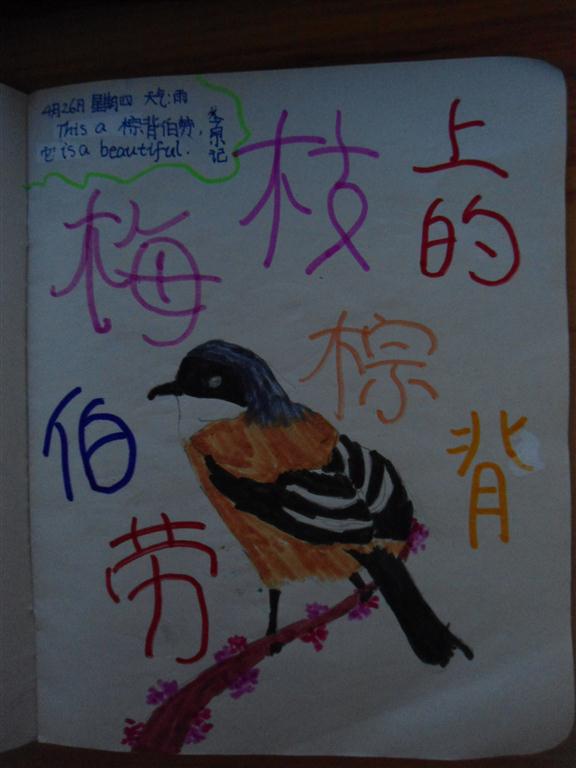 4月26日 星期四 天气:雨
This a 棕背伯劳,
它 is a beautiful.
记
梅枝上的
棕背
伯劳